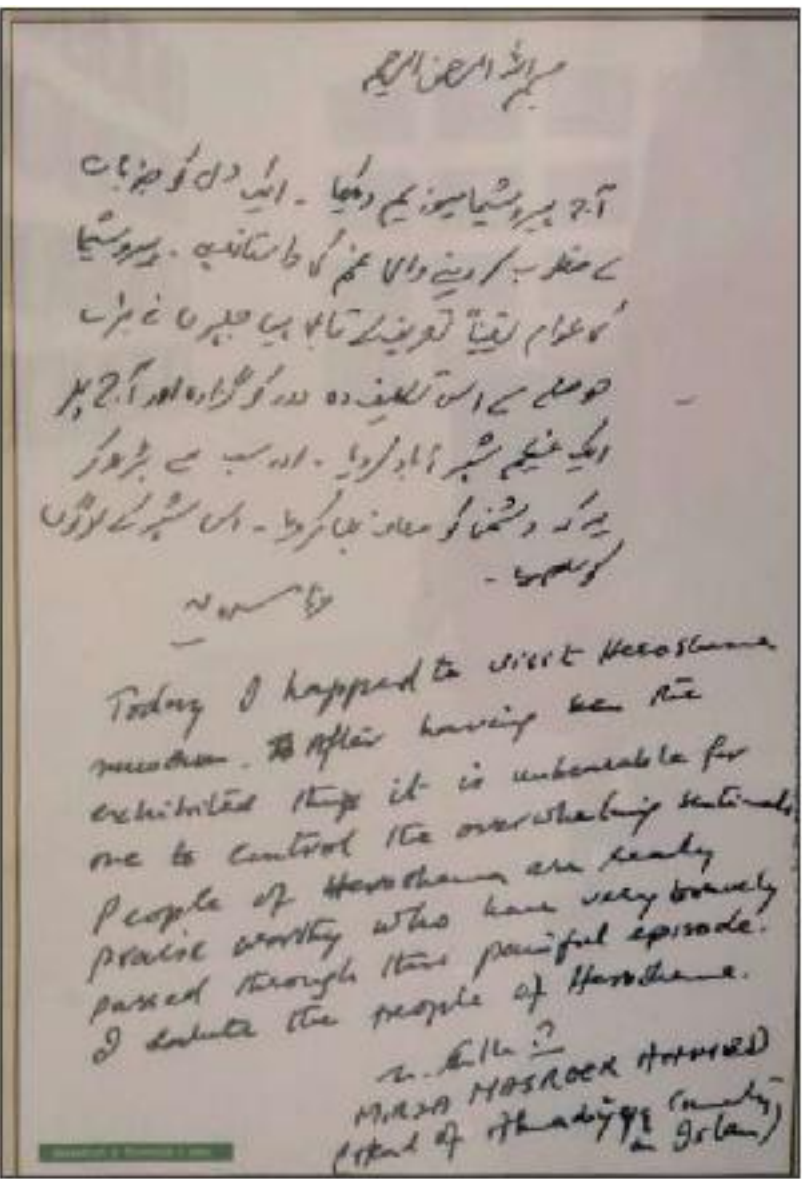 بسم اللہ الرحمن الرحیم
آج ہیروشیما میوزیم دیکھا ۔ ایک دل کو جذبات
سے مغلوب کر دینے والا غم کی داستان ہے ۔ ہیروشیما
کے عوام یقیناً تعریف کے قابل ہیں جنہوں نے بڑے
حوصلے سے اس تکلیف دہ دور کو گزارا اور آج پھر
ایک عظیم شہر آباد کر دیا ۔ اور سب سے بڑھ کر
یہ کہ دشمن کو معاف بھی کر دیا ۔ اس شہر کے لوگوں
کو سلام ۔
Today I happed to visit Heroshema
museum. After having seen the
exhibited things it is unbearable for
one to control the overwhelming sentiments
People of Heroshema are really
praise worthy who have very bravely
passed through this painful episode.
I salute the people of Heroshema.
MIRZA MASROOR AHMAD
(Head of Ahmadiyya Community
in Islam)